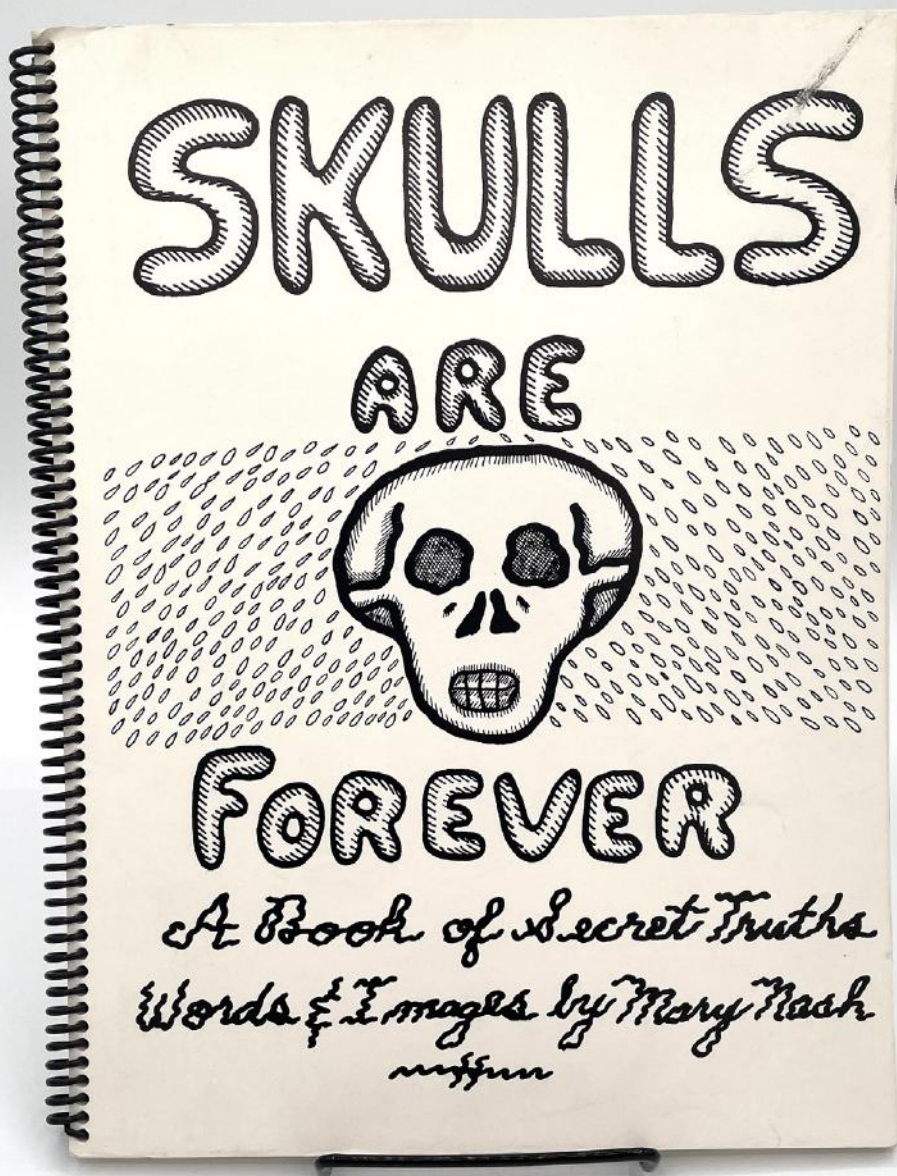 SKULLS
ARE
FOREVER
A Book of Secret Truths
Words & Images by Mary Nash